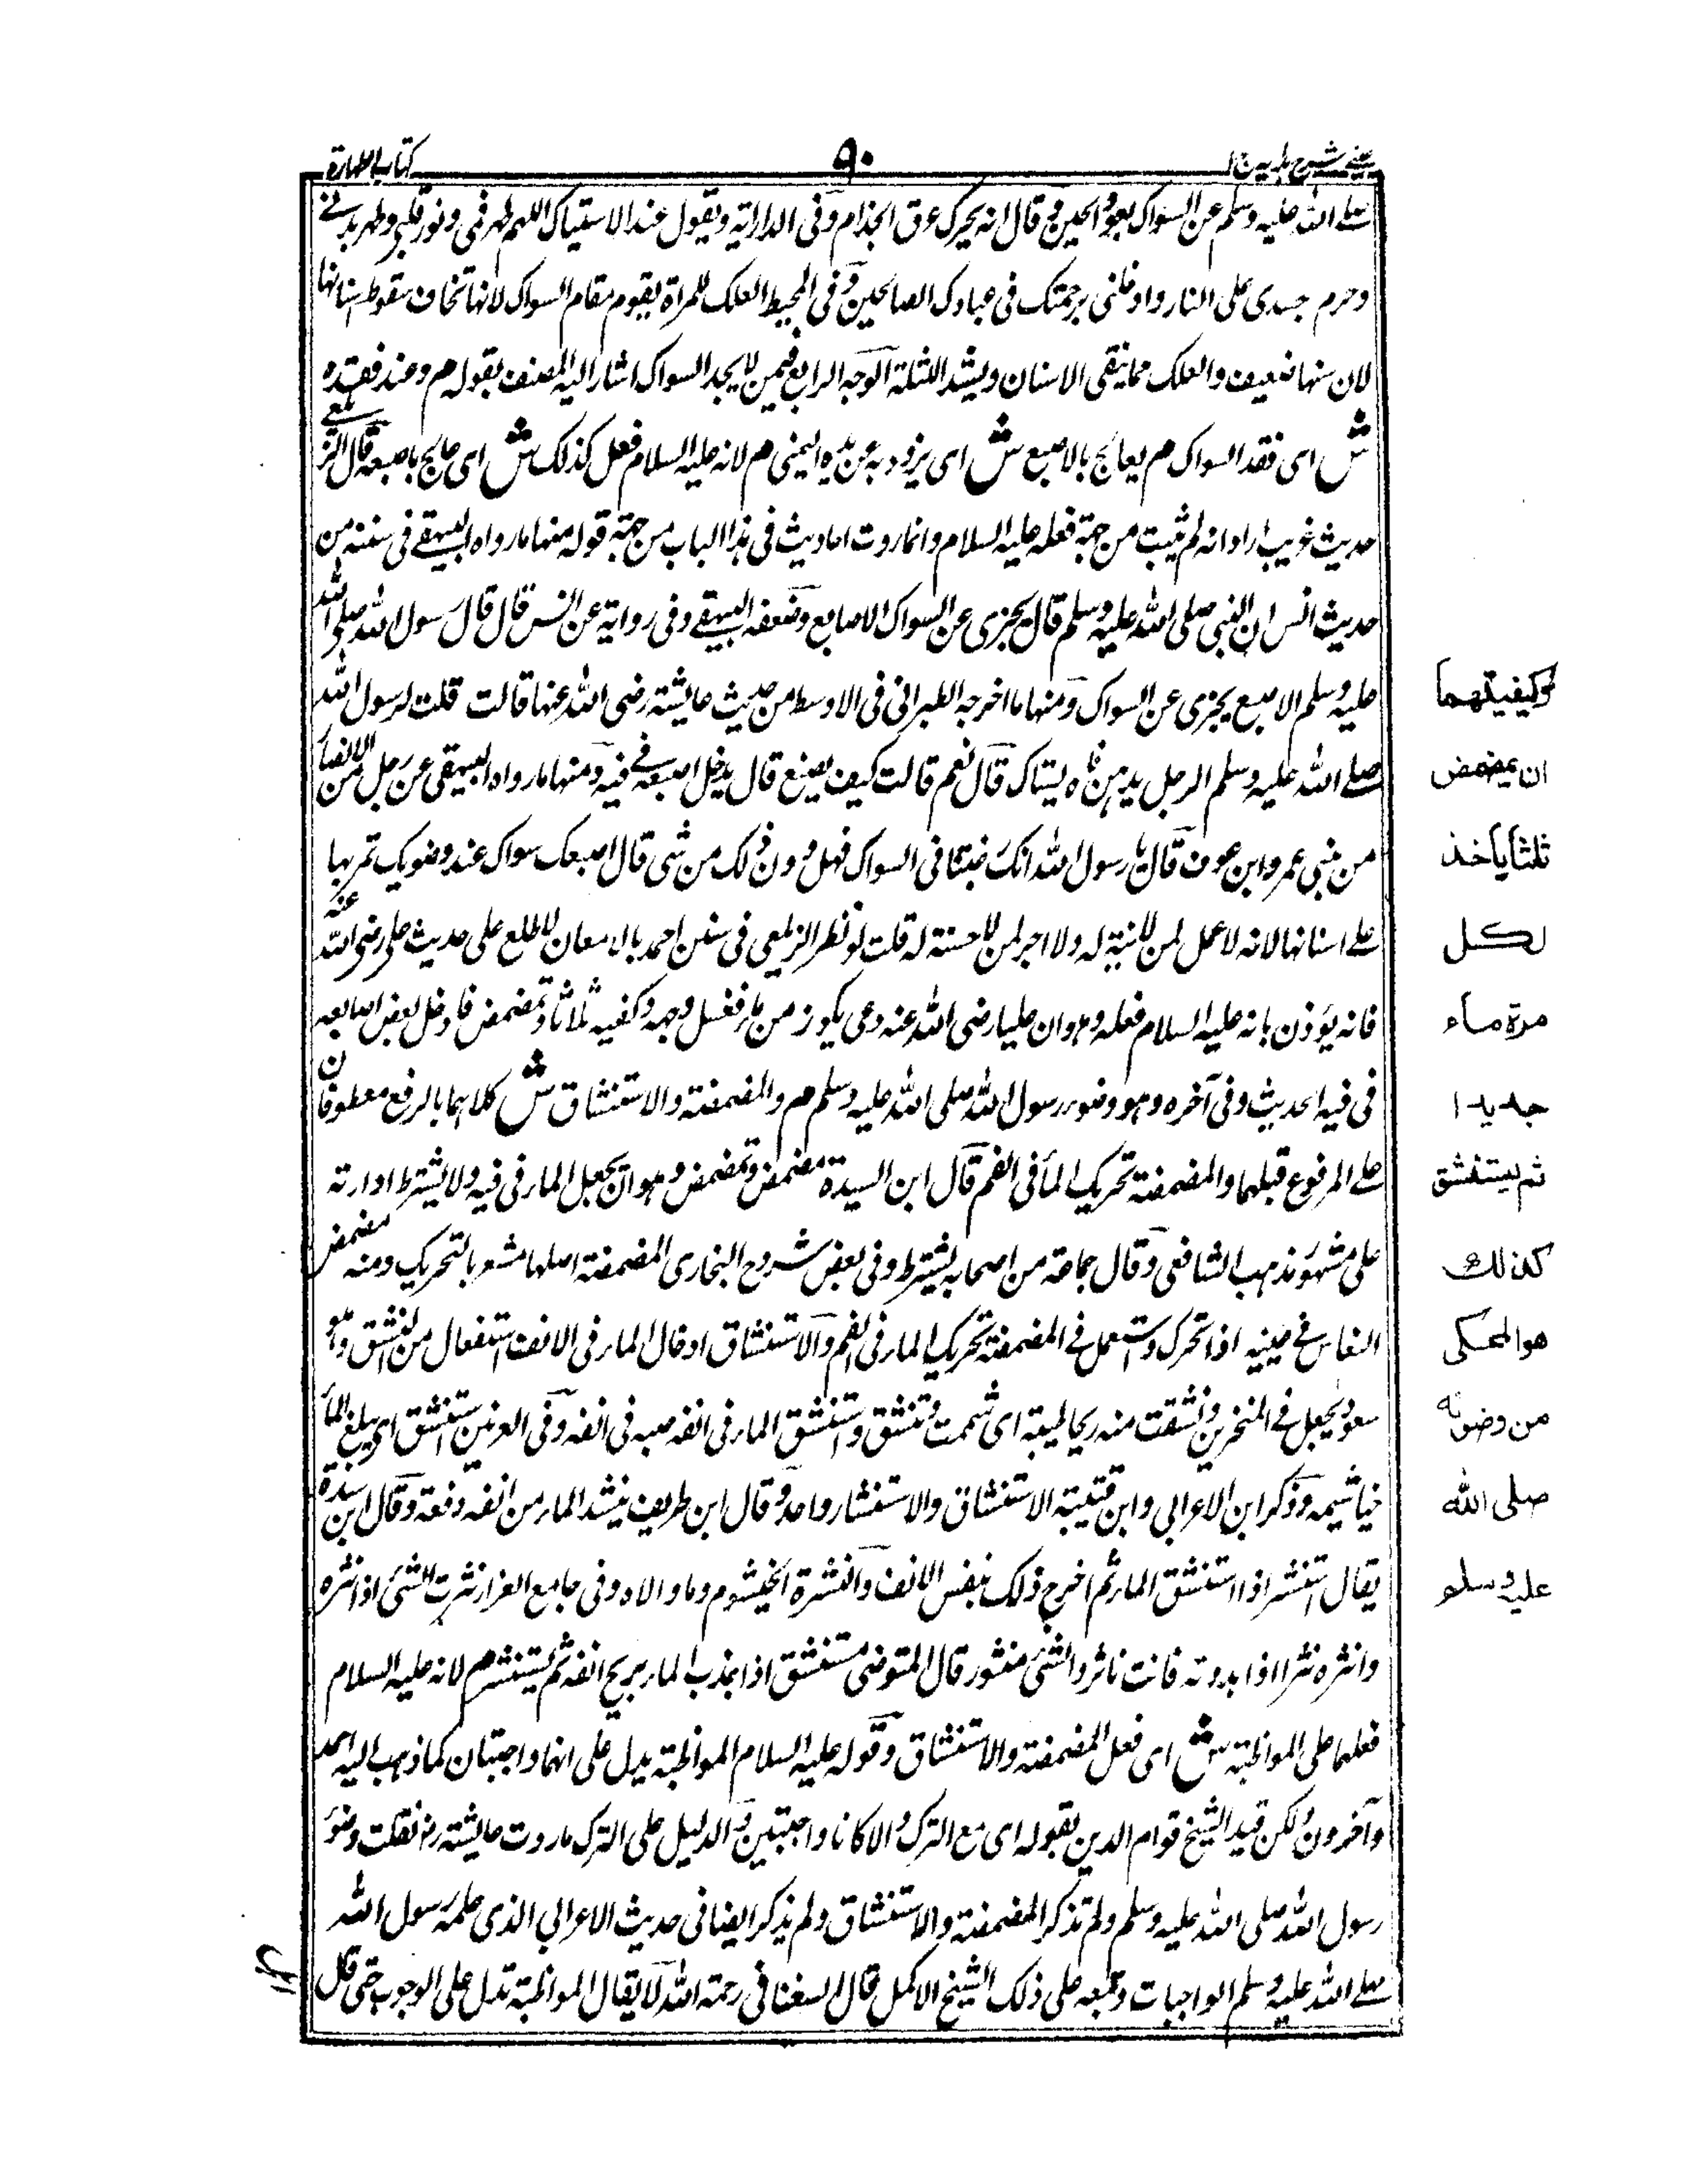 عينى شرح هداية ج ١
٩٠
كتاب الطهارة
صلے الله عليه وسلم عن السواك بعود الحين وقال انه يحرك عرق الجذام وفى الدراية ويقول عند الاستياك اللهم طهر فمى ونور قلبى وطهر بدنے
وحرم جسدى على النار وادخلنى برحمتك فى عبادك الصالحين وفى المحيط العلك للمرأة يقوم مقام السواك لانها تخاف سقوط اسنانها
لان سنها ضعيف والعلك مما ينقى الاسنان ويشد اللثة الوجه الرابع فيمن لا يجد السواك اشار اليه المصنف بقوله م وعند فقده
ش اى فقد السواك م يعالج بالاصبع ش اى بدو به عن يده اليمنى م لانه عليه السلام فعل كذلك ش اى عالج باصبعه قال الزيلعے
حديث غريب اراد انه لم يثبت من جهة فعله عليه السلام وانما روت احاديث فى هذا الباب من جهة قوله منها ما رواه البيهقے فى سننه من
حديث انس ان النبى صلى الله عليه وسلم قال يجزى عن السواك الاصابع وضعفه البيهقے وفى رواية عن انس قال قال رسول الله صلى الله
عليه وسلم الاصبع يجزى عن السواك ومنها ما اخرجه الطبرانى فى الاوسط من حديث عايشة رضى الله عنها قالت قلت لرسول الله
صلے الله عليه وسلم الرجل يدهن فاه يستاك قال نعم قالت كيف يصنع قال يدخل اصبعه فے فيه ومنها ما رواه البيهقى عن رجل من الانصار
من بنى عمرو ابن عوف قال يا رسول الله انك رغبتنا فى السواك فهل دون ذلك من شى قال اصبعك سواك عند وضوئك تمر بها
على اسنانها لانه لا عمل لمن لا نية له ولا اجر لمن لا حسنة له قلت لو نظر الزيلعى فى سنن احمد بالامعان لاطلع على حديث على رضى الله عنه
فانه يؤذن بانه عليه السلام فعله وهو ان عليا رضى الله عنه دعى بكوز من ماء فغسل وجهه وكفيه ثلاثا وتمضمض فادخل بعض اصابعه
فى فيه الحديث وفى آخره وهو وضوء رسول الله صلى الله عليه وسلم م والمضمضة والاستنشاق ش كلاهما بالرفع معطوفان
على المرفوع قبلهما والمضمضة تحريك الماء فى الفم قال ابن السيدة مضمض وتمضمض وهو ان يجعل الماء فى فيه ولا يشترط ادارته
على مشهور مذهب الشافعى وقال جماعة من اصحابه يشترط وفى بعض شروح البخارى المضمضة اصلها مشعر بالتحريك ومنه مضمض
النعاس فے عينيه اذا تحرك واستعمل فے المضمضة تحريك الماء فى الفم والاستنشاق ادخال الماء فى الانف استفعال من النشق وهو
سعوط يجعل فے المنخرين ونشقت منه ريحا طيبة اى شممت وتنشق واستنشق الماء فى انفه صبه فى انفه وفى العرنين استنشق اى يبلغ الماء
خياشيمه وذكر ابن الاعرابى وابن قتيبة الاستنشاق والاستنشار واحد وقال ابن طريف ينشد الماء من انفه دفعة وقال ابن سيدة
يقال استنثر اذا استنشق الماء ثم اخرج ذلك بنفس الانف والنثرة الخيشوم وما والاه وفى جامع العزاز نثرت الشئ اذا انثره
وانثره نثرا اذا بددته فانت ناثر والشئ منثور قال المتوضى مستنشق اذا جذب الماء بريح انفه ثم يستنثر م لانه عليه السلام
فعلهما على المواظبة ش اى فعل المضمضة والاستنشاق وقوله عليه السلام المواظبة يدل على انهما واجبتان كما ذهب اليه احمد
وآخرون ولكن قيد الشيخ قوام الدين بقوله اى مع الترك والا كانا واجبتين والدليل على الترك ما روت عايشة رض نقلت وضوء
رسول الله صلى الله عليه وسلم ولم تذكر المضمضة والاستنشاق ولم يذكر ايضا فى حديث الاعرابى الذى علمه رسول الله
صلے الله عليه وسلم الواجبات وتبعه على ذلك الشيخ الاكمل قال السغناقى رحمة الله لا يقال المواظبة تدل على الوجوب حتى قال
وكيفيتهما
ان يمضمض
ثلثا يأخذ
لكل
مرة ماء
جديدا
ثم يستنشق
كذلك
هو المحكى
من وضوئه
صلى الله
عليه وسلم